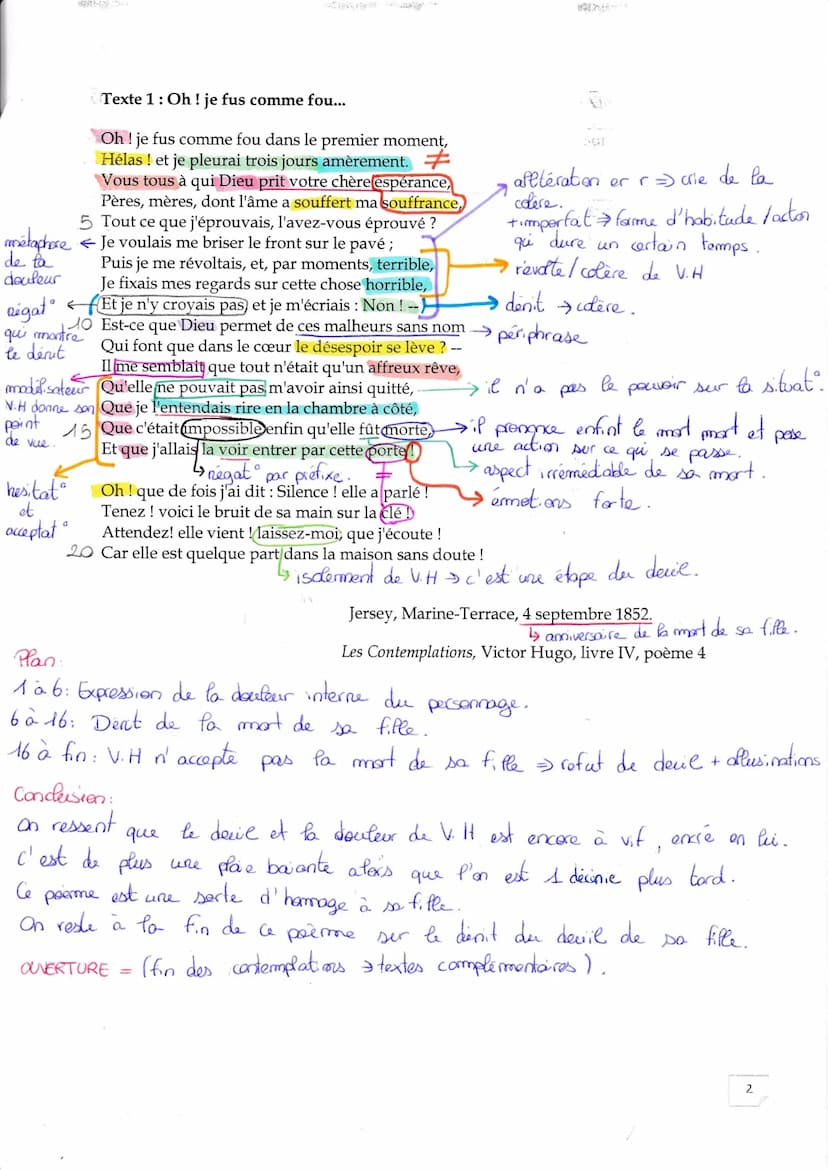 Texte 1 : Oh ! je fus comme fou...
Oh ! je fus comme fou dans le premier moment,
Hélas ! et je pleurai trois jours amèrement. ≠
Vous tous à qui Dieu prit votre chère espérance,
Pères, mères, dont l'âme a souffert ma souffrance,
5 Tout ce que j'éprouvais, l'avez-vous éprouvé ?
Je voulais me briser le front sur le pavé ;
Puis je me révoltais, et, par moments, terrible,
Je fixais mes regards sur cette chose horrible,
Et je n'y croyais pas, et je m'écriais : Non ! --
10 Est-ce que Dieu permet de ces malheurs sans nom
Qui font que dans le cœur le désespoir se lève ? --
Il me semblait que tout n'était qu'un affreux rêve,
Qu'elle ne pouvait pas m'avoir ainsi quitté,
Que je l'entendais rire en la chambre à côté,
15 Que c'était impossible enfin qu'elle fût morte,
Et que j'allais la voir entrer par cette porte !
Oh ! que de fois j'ai dit : Silence ! elle a parlé !
Tenez ! voici le bruit de sa main sur la clé !
Attendez! elle vient ! laissez-moi, que j'écoute !
20 Car elle est quelque part dans la maison sans doute !
métaphore
de la
douleur
négat°
qui montre
le dénit
modélisateur
V.H donne son
point
de vue.
hesitat°
et
acceptat°
allitération en r => crie de la
colère.
+ imparfait => forme d'habitude / action
qui dure un certain temps.
révolte/colère de V.H
dénit → colère.
périphrase
il n'a pas le pouvoir sur la situat°.
il prononce enfint le mot mort et pose
une action sur ce qui se passe.
aspect irrémédiable de sa mort.
négat° par préfixe.
émotions forte.
isolement de V.H → c'est une étape du deuil.
Jersey, Marine-Terrace, 4 septembre 1852.
anniversaire de la mort de sa fille.
Les Contemplations, Victor Hugo, livre IV, poème 4
Plan:
1 à 6: Expression de la douleur interne du personnage.
6 à 16: Dénit de la mort de sa fille.
16 à fin : V.H n'accepte pas la mort de sa fille => refut de deuil + allusinations
Conclusion:
On ressent que le deuil et la douleur de V.H est encore à vif, encré en lui.
C'est de plus une plaie baiante alors que l'on est 1 décénie plus tard.
Ce poème est une sorte d'homage à sa fille.
On reste à la fin de ce poème sur le dénit du deuil de sa fille.
OUVERTURE = (fin des contemplations → textes complémentaires).
2